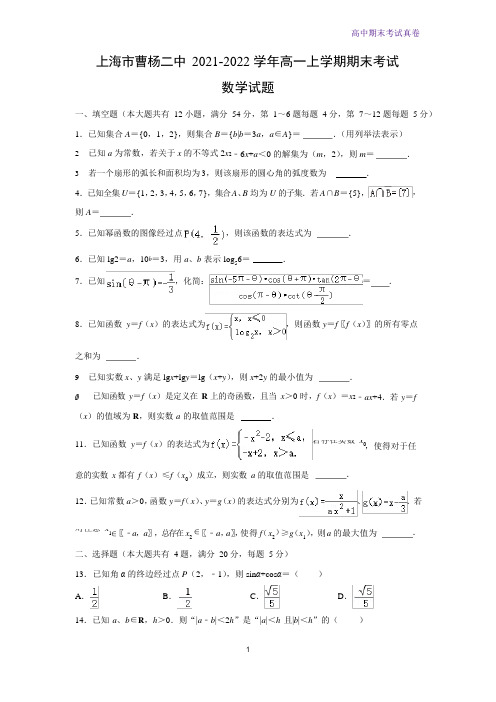 高中期末考试真卷
上海市曹杨二中 2021-2022 学年高一上学期期末考试
数学试题
一、填空题（本大题共有 12 小题，满分 54 分，第 1～6 题每题 4 分，第 7～12 题每题 5 分）
1．已知集合 A＝{0，1，2}，则集合 B＝{b|b＝3a，a∈A}＝ ______．（用列举法表示）
2 已知 a 为常数，若关于 x 的不等式 2x²﹣6x+a＜0 的解集为（m，2），则 m＝ ______．
3 若一个扇形的弧长和面积均为 3，则该扇形的圆心角的弧度数为 ______．
4．已知全集 U＝{1，2，3，4，5，6，7}，集合 A、B 均为 U 的子集．若 A∩B＝{5}，A∩B̄＝{7}，
则 A＝______．
5．已知幂函数的图像经过点 P(4, 1/2)，则该函数的表达式为 ______．
6．已知 lg2＝a，10ᵇ＝3，用 a、b 表示 log₅6＝ ______．
7．已知 sin(θ-π)=1/3，化简：sin(-5π-θ)•cos(θ+π)•tan(2π-θ)/cos(θ-π)•cot(θ-π/2)＝ ______．
8．已知函数 y＝f（x）的表达式为 f(x)={x, x≤0; log₂x, x＞0，则函数 y＝f〖f（x）〗的所有零点
之和为 ______．
9 已知实数 x、y 满足 lgx+lgy＝lg（x+y），则 x+2y 的最小值为 ______．
已知函数 y＝f（x）是定义在 R 上的奇函数，且当 x＞0 时，f（x）＝x²﹣ax+4．若 y＝f
（x）的值域为 R，则实数 a 的取值范围是 ______．
11．已知函数 y＝f（x）的表达式为 f(x)={-x²-2, x≤a, -x+2, x＞a. 若存在实数 x₀，使得对于任
意的实数 x 都有 f（x）≤f（x₀）成立，则实数 a 的取值范围是 ______．
12．已知常数 a＞0，函数 y＝f（x）、y＝g（x）的表达式分别为 f(x)=x/(ax²+1)、g(x)=x-a/3．若
对任意 x₁∈〖﹣a，a〗，总存在 x₂∈〖﹣a，a〗，使得 f（x₂）≥g（x₁），则 a 的最大值为 ______．
二、选择题（本大题共有 4 题，满分 20 分，每题 5 分）
13．已知角 α 的终边经过点 P（2，﹣1），则 sinα+cosα＝（ ）
A．1/2 B．-1/2 C．√5/5 D．-√5/5
14．已知 a、b∈R，h＞0．则“|a﹣b|＜2h”是“|a|＜h 且|b|＜h”的（ ）
1